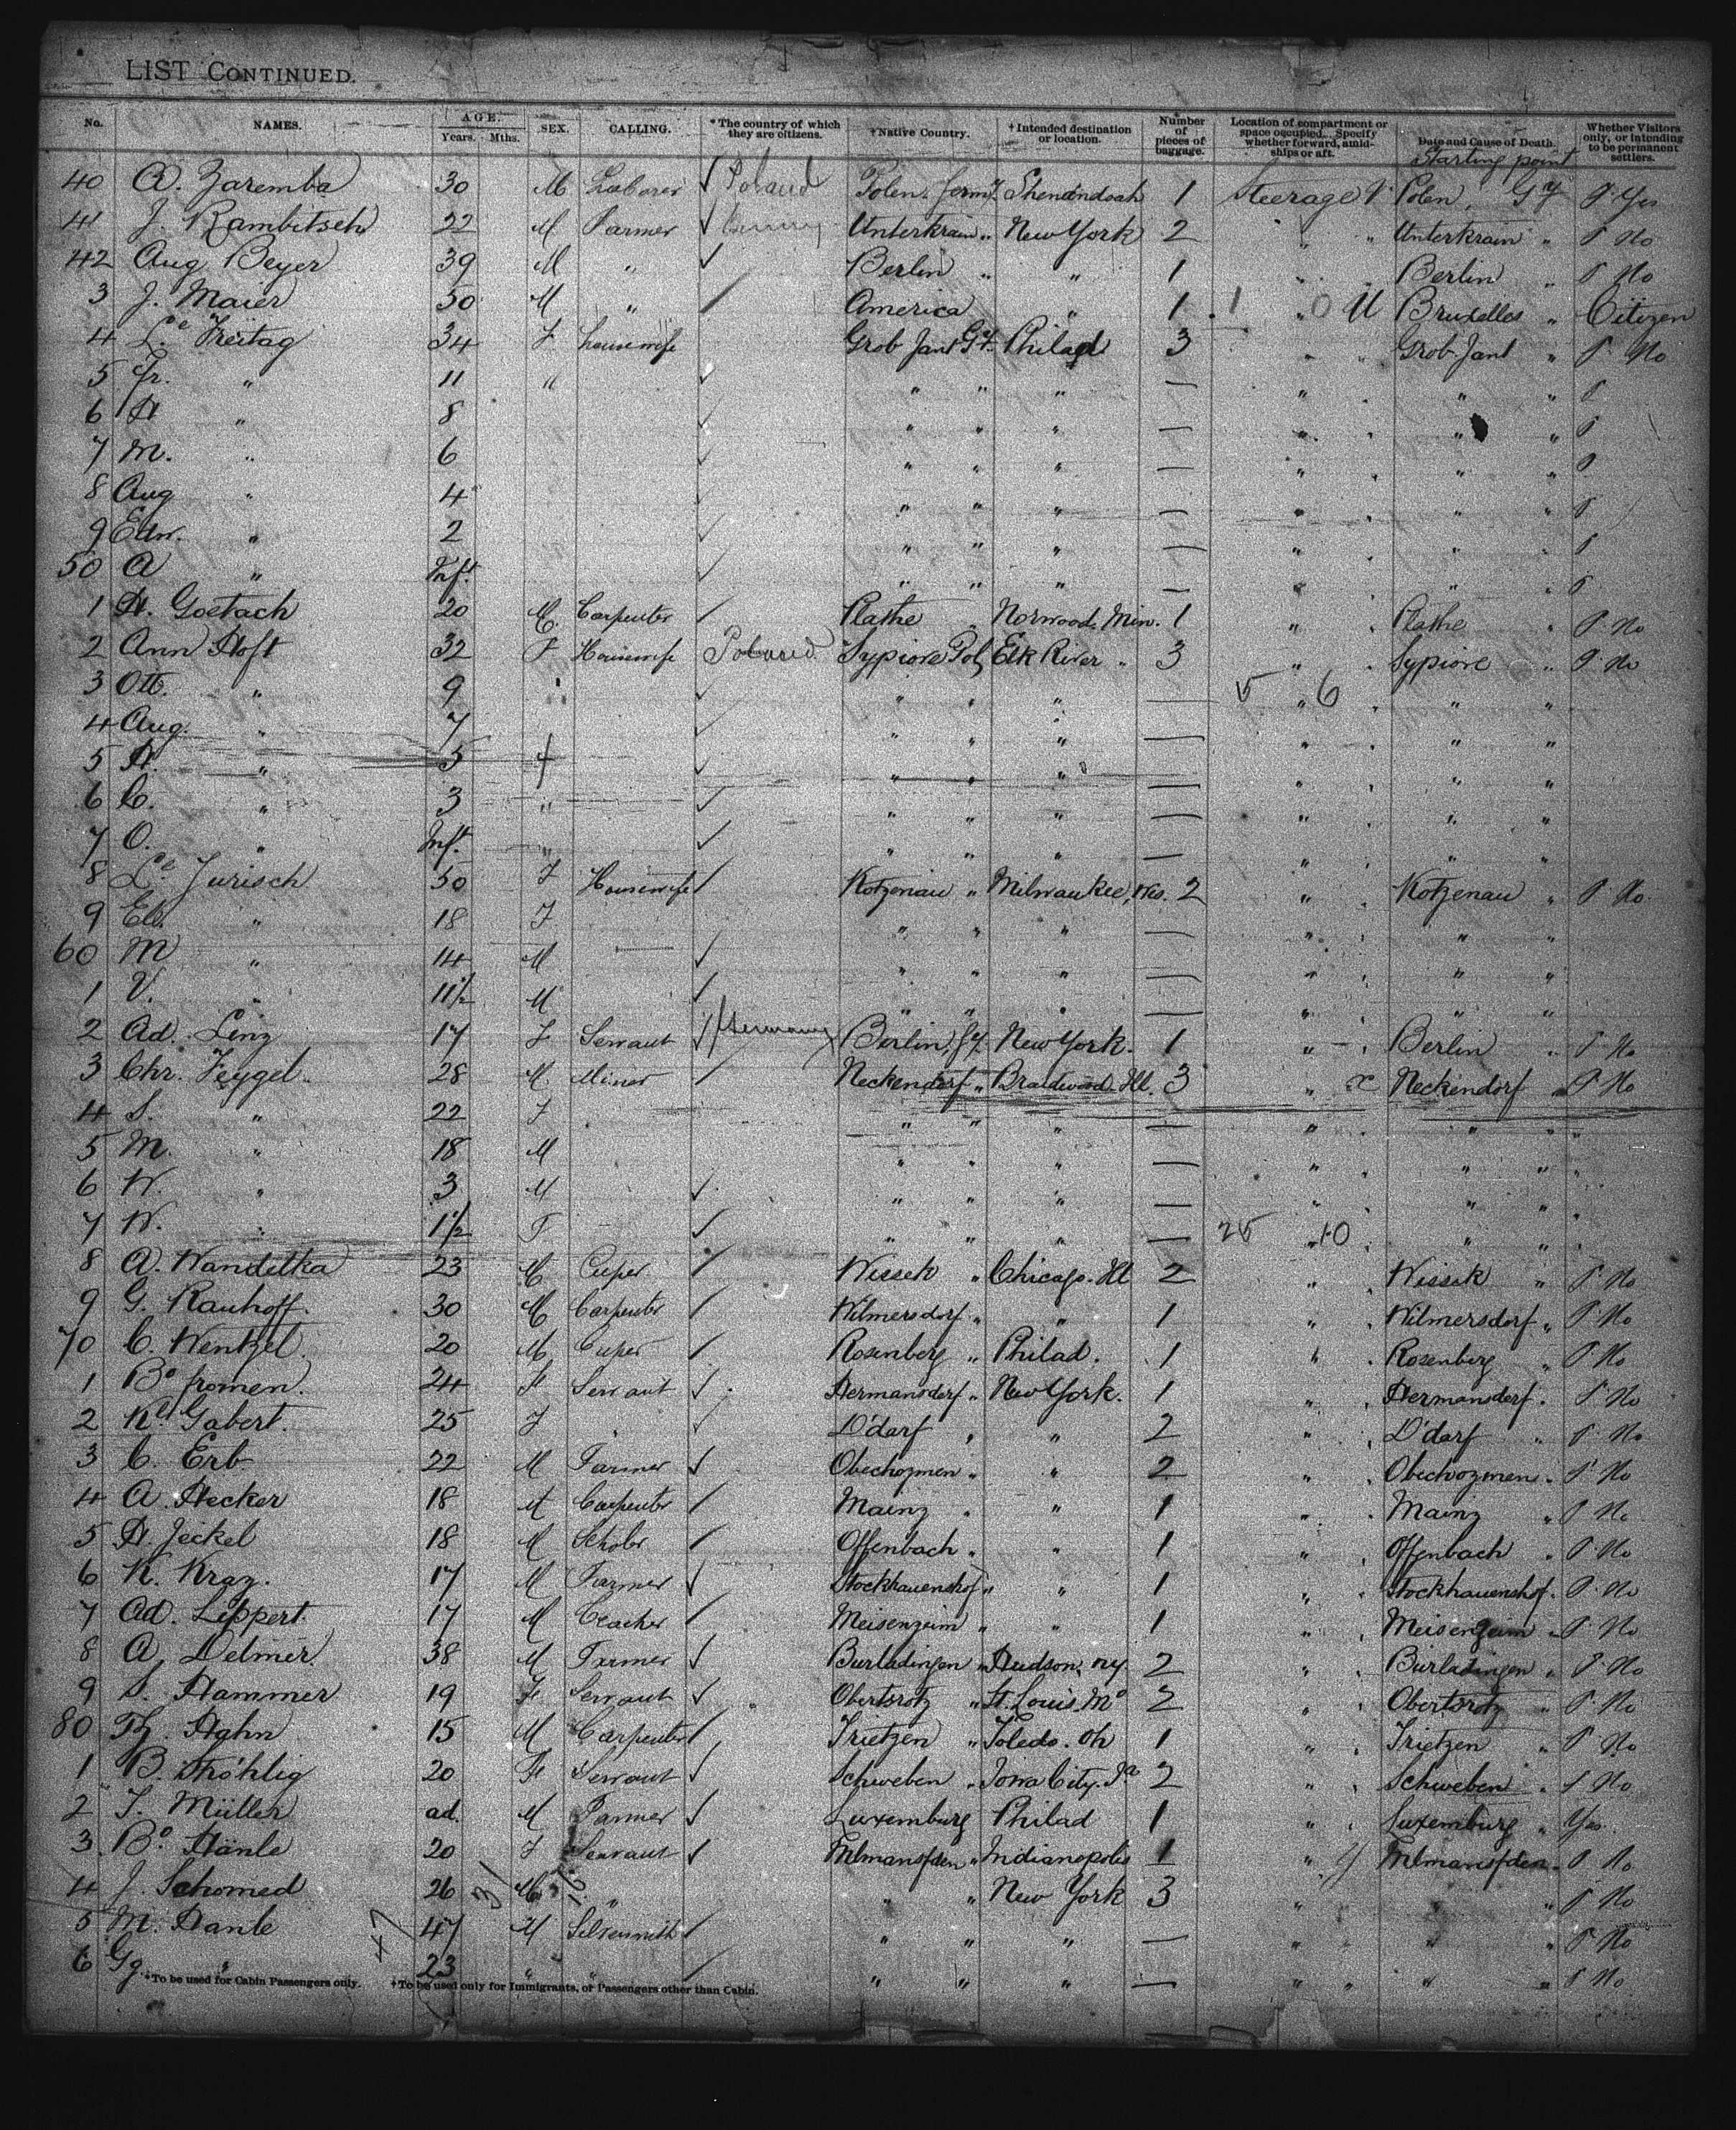 LIST CONTINUED.
No. NAMES. AGE. Years. Mths. SEX. CALLING. *The country of which they are citizens. †Native Country. †Intended destination or location. Number of pieces of baggage. Location of compartment or space occupied. Specify whether forward, amidships or aft. Date and Cause of Death. Whether Visitors only, or intending to be permanent settlers.
Starting point
40 A. Zaremba 30 M Laborer ✓ Poland Polen. Germy. Shenandoah 1 Steerage Polen, Gy P. Yes
41 J. Rambitsch 22 M Farmer ✓ Unterkrain " New York 2 " " Unterkrain " P No
42 Aug Beyer 39 M " ✓ Berlin " " 1 " Berlin " P No
3 J. Maier 50 M " / America " 1 1 " 0 U Bruxelles " Citizen
4 Ce Freitag 34 F housewife Grob Jant Gy. Philad 3 " " Grob Jant " P. No
5 Fr. " 11 " ✓ " " " — " " " P
6 H " 8 ✓ " " " — " " " P
7 M. " 6 ✓ " " " — " " " P
8 Aug " 4 ✓ " " " — " " " P
9 Edw. " 2 ✓ " " " — " " " P
50 A " Inft. ✓ " " " — " " " P
1 H. Goetach 20 M. Carpenter / Plathe " Norwood. Min. 1 " Plathe " P No
2 Ann Hoft 32 F Housewife Poland Sypiore Pol, Elk River " 3 " Sypiore " P No
3 Ott. " 9 " ✓ " " " — 5 " 6 " "
4 Aug. " 7 ✓ " " " — " " " "
5 H. " 5 f ✓ " " " — " " " "
6 C. " 3 " ✓ " " " — " " " "
7 O. " Inft. " ✓ " " " — " " " "
8 Ce Jurisch 50 F Housewife / Kotzenau " Milwaukee, Wis. 2 " Kotzenau " P No
9 Els. " 18 F " " " — " " " "
60 M " 14 M — ✓ " " " — " " " "
1 V. " 11½ M ✓ " " " — " " " "
2 Ad. Linz 17 F Servant ✓ Germany Berlin, Gy. New York. 1 " Berlin " P No
3 Chr. Feygel 28 M. Miner / Neckendorf " Braidwood Ill. 3 " x Neckendorf " P No
4 S. " 22 F " " " — " " " "
5 M. " 18 M " " " — " " " "
6 W. " 3 M ✓ " " " — " " " "
7 W. " 1½ F ✓ " " " — 25 " 10 " "
8 A. Wanditka 23 M Cuper / Wissek " Chicago. Ill 2 " Wissek " P No
9 G. Rauhoff. 30 M Carpenter / Wilmersdorf " " 1 " Wilmersdorf " P No
70 C. Wentzel. 20 M Cuper / Rosenberg " Philad. 1 " Rosenberg " P No
1 Ba fromen. 24 F Servant ✓ Hermansdorf " New York. 1 " Hermansdorf. P No
2 Kd Gabert. 25 F " ✓ D'darf " " 2 " D'darf " P No
3 C. Erb 22 M Farmer ✓ " " 2 " P No
4 A. Hecker 18 M Carpenter / Mainz " " 1 " Mainz " P No
5 H. Jeckel 18 M / Offenbach " " 1 " Offenbach " P No
6 K. Kraz. 17 M Farmer ✓ Stockhauenshof " " 1 " Stockhauenshof. P No
7 Ad. Leppert. 17 M Teacher / Meisenzeim " " 1 " Meisenzeim " P No
8 A. Delmer. 38 M Farmer ✓ Burladingen " Hudson, ny. 2 " Burladingen " P No
9 S. Hammer 19 F Servant ✓ Obertsrotz " St. Louis. Mo 2 " Obertsrotz " P No
80 Th. Hahn 15 M Carpenter / Trietzen " Toledo. Oh 1 " Trietzen " P No
1 B. Fröhlig 20 F Servant ✓ Schweben " Iowa City. Ia 2 " Schweben " P No
2 J. Müller ad. M Farmer ✓ Luxemburg Philad 1 " Luxemburg " Yes.
3. Ba Hänle 20 F Servant ✓ " Indianapolis 1 " " P No
4 J. Schomed 26 M " " " New York 3 " " P No
5 M. Hanle 47 M Silversmith / " " " — " " " " P No
6 Gg. " 23 " " / " " " — " " " " P No
*To be used for Cabin Passengers only. †To be used only for Immigrants, or Passengers other than Cabin.